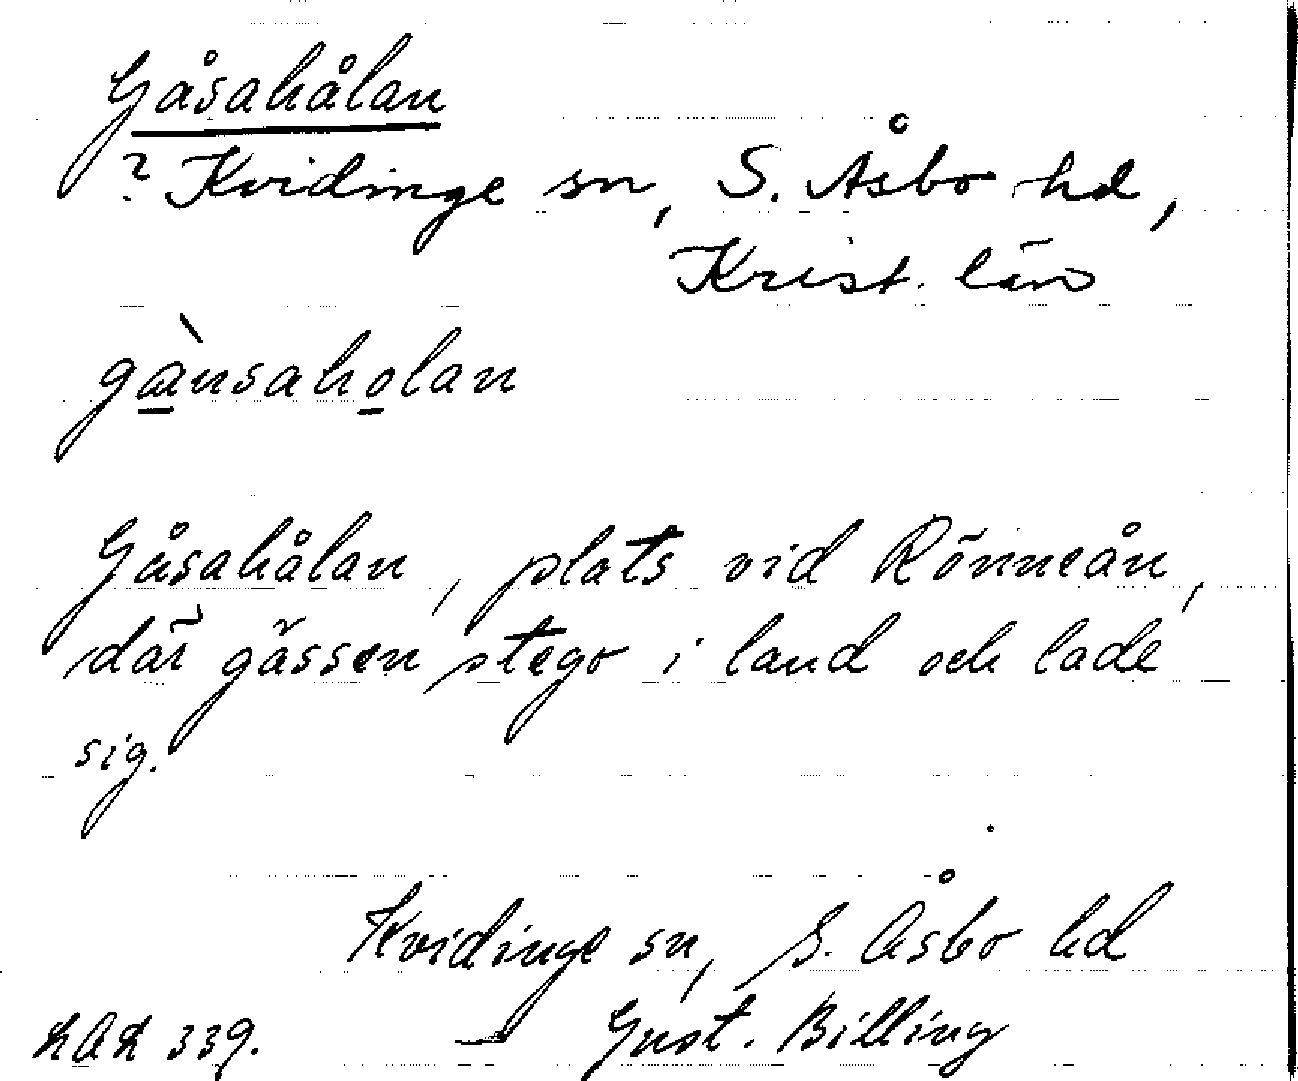 Gåsahålan
? Kvidinge sn, S. Åsbo hd,
Krist. län
gànsaholan
Gåsahålan, plats vid Rönneån,
där gässen stego i land och lade
sig.
Kvidinge sn, S. Åsbo hd
LAL 339. — Gust. Billing